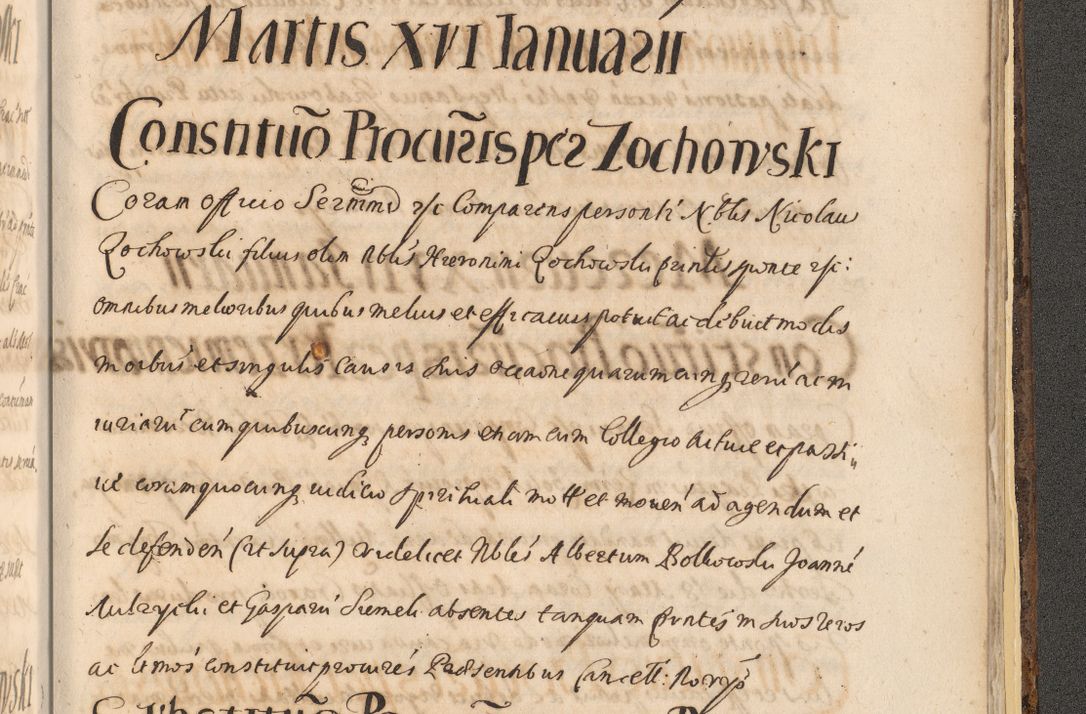 Martis XVI Ianuarii
Constituõ Procur̃is per Zochowski
Coram officio Sermmd r/c Comparens personlĩ Nblis Nicolaus
Zochowski filius olim Nblis Hieronimi Zochowski pñtis sponte r/c:
omnibus melioribus quibus melius et efficacius potuit ac debuit modis
in oĩbus et singulis causis suis occaõne quarumcunq̃ rerũ ac in
iuriarũ cum quibuscunq̃ personis etiam cum Collegio active et passi„
ve coram quocunq̃ iudicio spirituali mõtt et movenˊ ad agendum et
se defendenˊ (ut supra) videlicet Nbles Albertum Bolkowski Joannẽ
et Gasparũ absentes tanquam pñtes in suos veros
ac ltmos constituit procures Præsentibus Cancell: